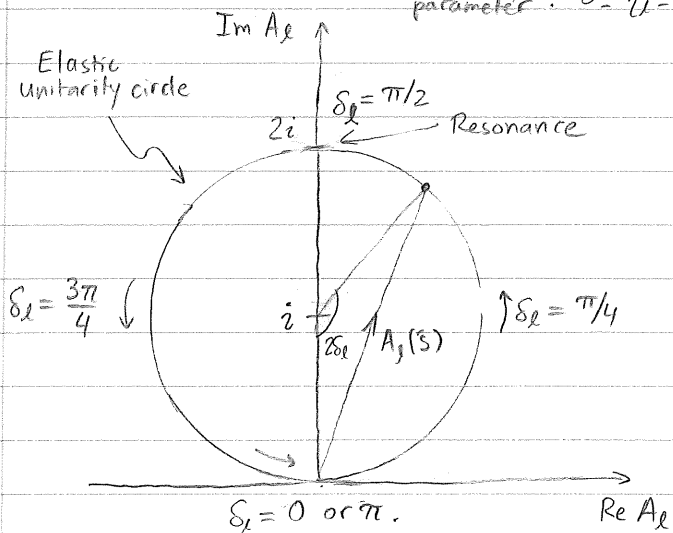 parameter :
Im Aℓ
Elastic
unitarity circle
δℓ = π/2
2i
Resonance
δℓ = 3π/4
i
2δℓ
Aℓ(s)
δℓ = π/4
δℓ = 0 or π.
Re Aℓ